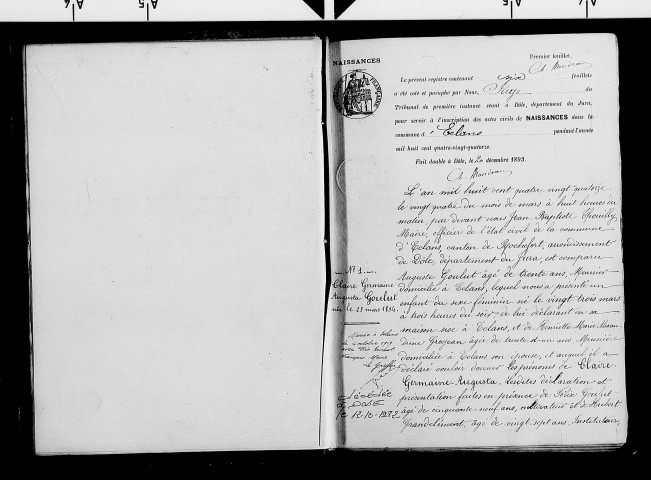 NAISSANCES
Premier feuillet.
Le présent registre contenant six feuillets
a été coté et paraphé par Nous, Juge du
Tribunal de première instance séant à Dôle, département du Jura,
pour servir à l'inscription des actes civils de NAISSANCES dans la
commune d'Eclans pendant l'année
mil huit cent quatre-vingt-quatorze.
Fait double à Dôle, le 20 décembre 1893.
L'an mil huit cent quatre vingt quatorze
le vingt quatre du mois de mars à huit heures du
matin par devant nous Jean Baptiste
Maire, officier de l'état civil de la commune
d'Eclans, canton de Rochefort, arrondissement
de Dôle, département du Jura, est comparu
Auguste Goulut âgé de trente ans, Meunier
domicilié à Eclans, lequel nous a présenté un
enfant du sexe féminin né le vingt trois mars
à trois heures du soir de lui déclarant en sa
maison sise à Eclans, et de Henriette Marie Alexan-
drine Grosjean âgée de trente et un ans Meunière
domiciliée à Eclans son épouse, et auquel il a
déclaré vouloir donner les prénoms de Claire
Germaine Augusta. Lesdites déclaration et
présentation faites en présence de Félix Goulut
âgé de cinquante-neuf ans, cultivateur et de Hubert
Grandclément, âgé de vingt-sept ans, Instituteur,
N° 1
Claire Germaine
Augusta Goulut
née le 23 mars 1894.
Mariée à Eclans
le octobre 1919
avec
Décédée
à DOLE
le 12-10-1972